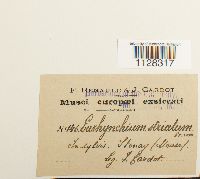 1128317
F. RENAULD & J. CARDOT
Musci europaei exsiccati
Eurhynchium striatum
In sylvis. Stenay (Meuse).
Lg. J. Cardot